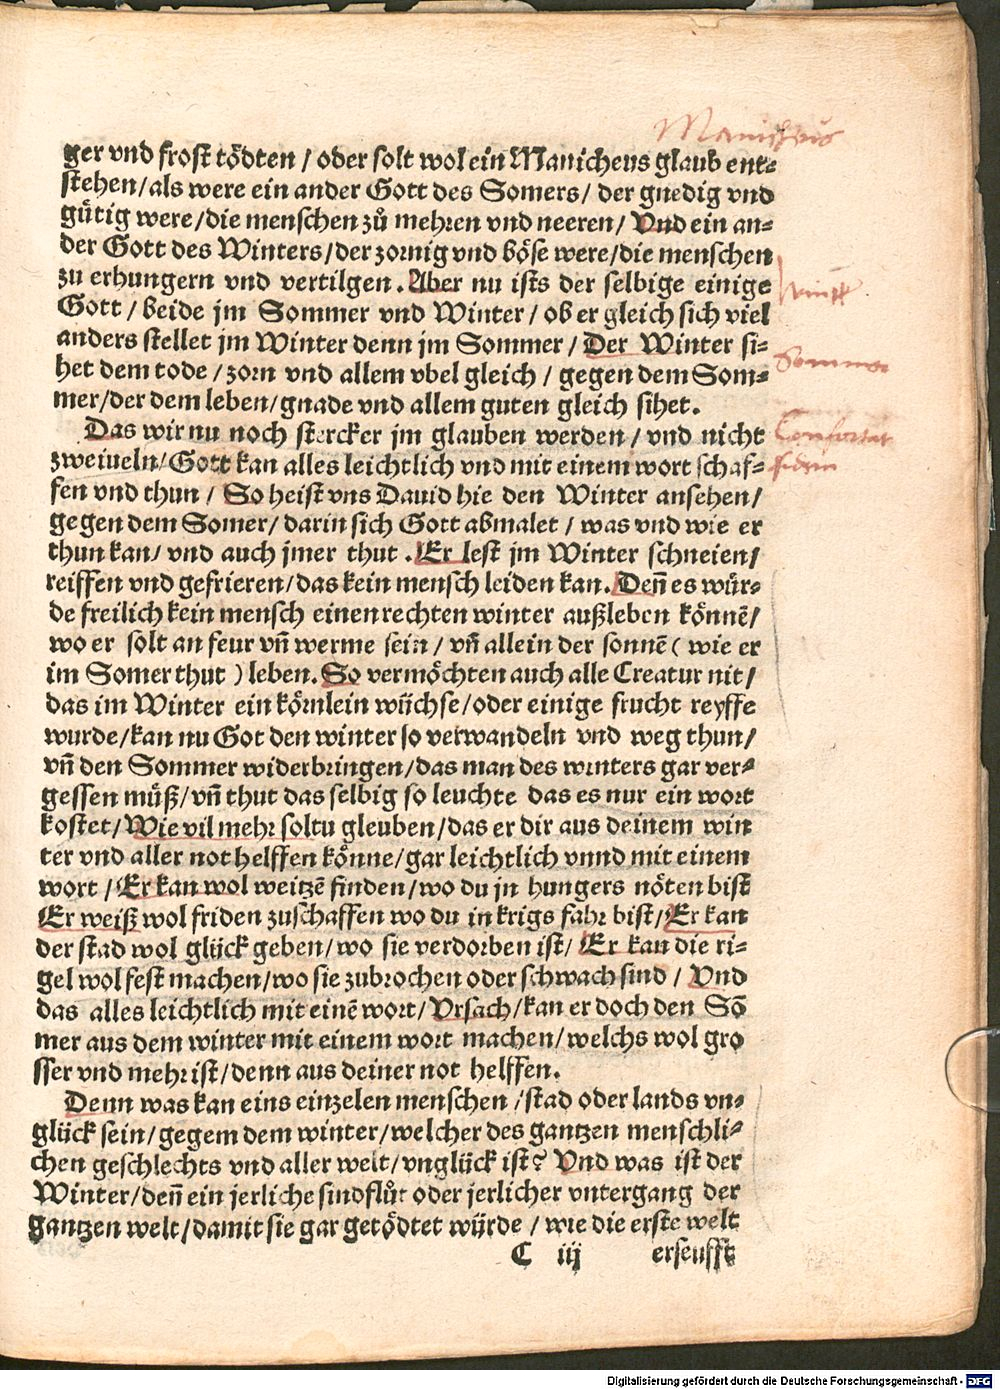 Manicheus
ger vnd frost tödten / oder solt wol ein Manicheus glaub ent-
stehen / als were ein ander Gott des Somers / der gnedig vnd
gütig were / die menschen zů mehren vnd neeren / Vnd ein an-
der Gott des Winters / der zornig vnd böse were / die menschen
zu erhungern vnd vertilgen . Aber nu ists der selbige einige
Gott / beide jm Sommer vnd Winter / ob er gleich sich viel
anders stellet jm Winter denn jm Sommer / Der Winter si-
Sommer
het dem tode / zorn vnd allem vbel gleich / gegen dem Som-
mer / der dem leben / gnade vnd allem guten gleich sihet.
Das wir nu noch stercker jm glauben werden / vnd nicht
zweiueln / Gott kan alles leichtlich vnd mit einem wort schaf-
fen vnd thun / So heist vns Dauid hie den Winter ansehen /
gegen dem Somer / darin sich Gott abmalet / was vnd wie er
thun kan / vnd auch jmer thut . Er lest jm Winter schneien /
reiffen vnd gefrieren / das kein mensch leiden kan. Deñ es wür-
de freilich kein mensch einen rechten winter außleben könnē /
wo er solt an feur vñ werme sein / vñ allein der sonnē ( wie er
im Somer thut ) leben. So vermöchten auch alle Creatur nit /
das im Winter ein körnlein wüchse / oder einige frucht reyffe
wurde / kan nu Got den winter so verwandeln vnd weg thun /
vñ den Sommer widerbringen / das man des winters gar ver-
gessen müß / vñ thut das selbig so leuchte das es nur ein wort
kostet / Wie vil mehr soltu gleuben / das er dir aus deinem win
ter vnd aller not helffen könne / gar leichtlich vnnd mit einem
wort / Er kan wol weitzē finden / wo du jn hungers nöten bist
Er weiß wol friden zuschaffen wo du in krigs fahr bist / Er kan
der stad wol glück geben / wo sie verdorben ist / Er kan die ri-
gel wol fest machen / wo sie zubrochen oder schwach sind / Vnd
das alles leichtlich mit einē wort / Vrsach / kan er doch den Sō
mer aus dem winter mit einem wort machen / welchs wol gro
sser vnd mehr ist / denn aus deiner not helffen.
Denn was kan eins einzelen menschen / stad oder lands vn-
glück sein / gegem dem winter / welcher des gantzen menschli-
chen geschlechts vnd aller welt / vnglück ist? Vnd was ist der
Winter / deñ ein jerliche sindflůt oder jerlicher vntergang der
gantzen welt / damit sie gar getödtet würde / wie die erste welt
C iij erseufft
Digitalisierung gefördert durch die Deutsche Forschungsgemeinschaft - DFG